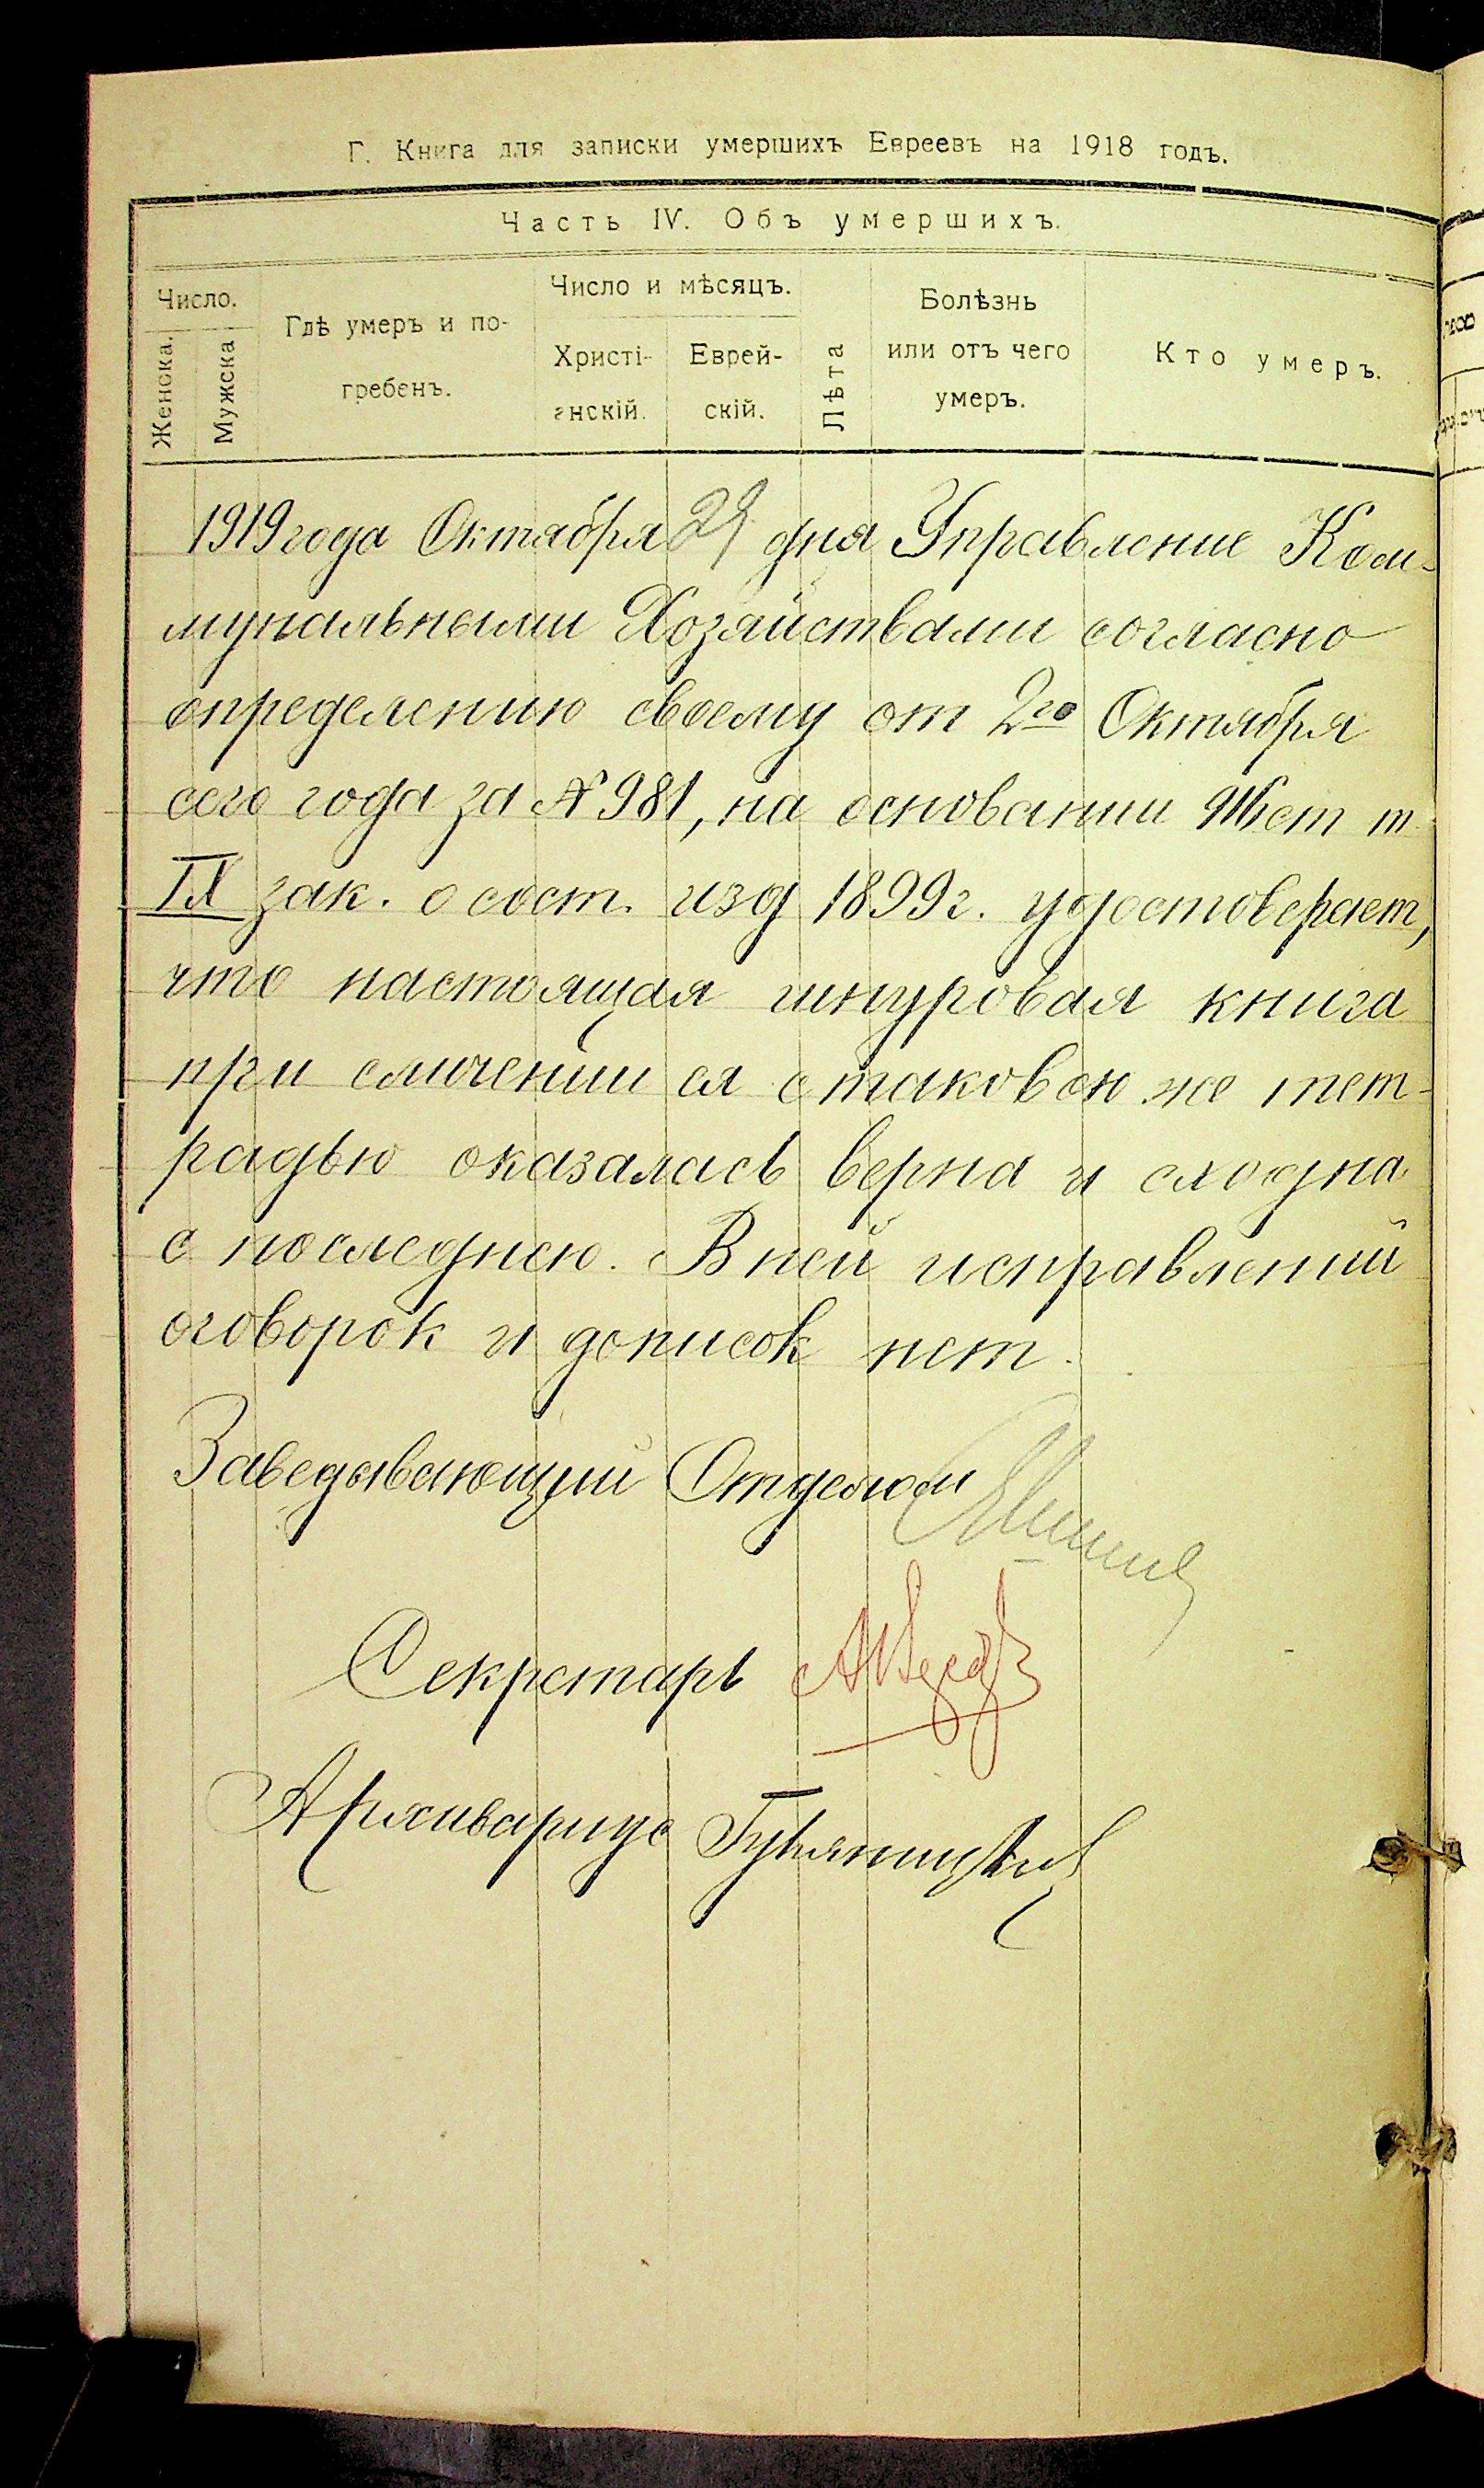 Г. Книга для записки умершихъ Евреевъ на 1918 годъ.
Часть IV. Объ умершихъ.
Число.
Женска.
Мужска
Гдѣ умеръ и по-
гребенъ.
Число и мѣсяцъ.
Христі-
анскій.
Еврей-
скій.
Лѣта
Болѣзнь
или отъ чего
умеръ.
Кто умеръ.
1919 года Октября 29 дня Управление Ком-
мунальными Хозяйствами согласно
определению своему от 2го Октября
сего года за № 981, на основании т
IX зак. о сост. изд 1899 г. удостоверяет,
что настоящая шнуровая книга
при сличении ея с таковою же тет-
радью оказалась верна и сходна
с последнею. В ней исправлений
оговорок и дописок нет.
Заведывающий Отделом
Секретарь
Архивариус